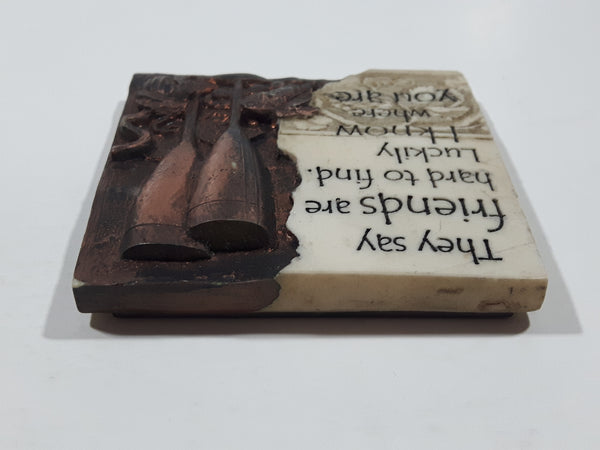 They say
friends are
hard to find.
Luckily
I know
where
you are